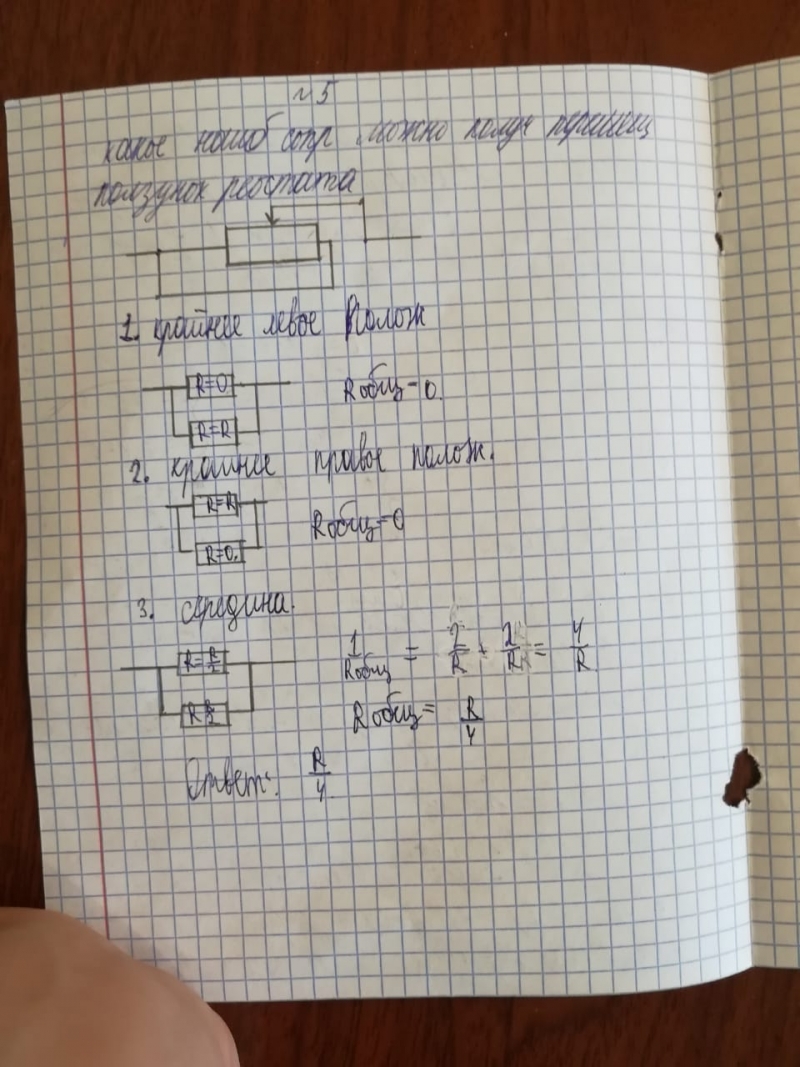 №5
какое наиб сопр можно получ перемещ
ползунок реостата
1. крайнее левое полож
R=0
R=R
Rобщ=0.
2. крайнее правое полож.
R=R
R=0.
Rобщ=0
3. середина.
R=R/2
R R/2
1/Rобщ = 2/R + 2/R = 4/R
Rобщ= R/4
Ответ: R/4